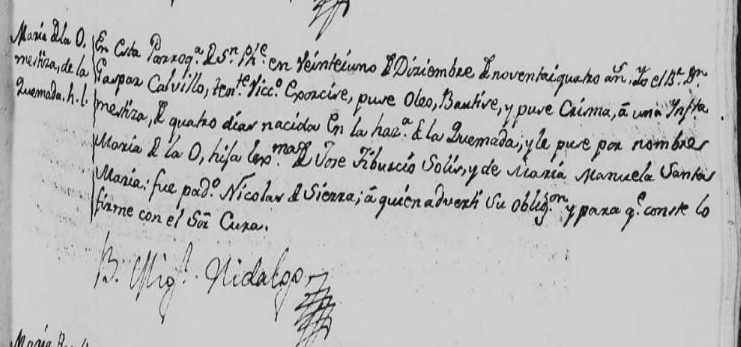 Maria de la O.
mestiza, de la
Quemada. h. l.
En esta Parroqª. de Sn. Phe. en veinteiuno de Diziembre de noventaiquatro añs. Yo el Br. Dn
Gaspar Calvillo, tente. Vicco. Exorcise, puse Oleo, Bautise, y puse Crisma, â una Infta.
mestiza, de quatro dias nacida en la hazª. de la Quemada; y le puse por nombres
Maria de la O, hija lexma. de Jose Tiburcio Solis, y de Maria Manuela Santos
Maria: fue padº. Nicolas de Sierra; â quien adverti su obligon. y para qe. conste lo
firme con el Sor. Cura.
B. Migl. Hidalgo